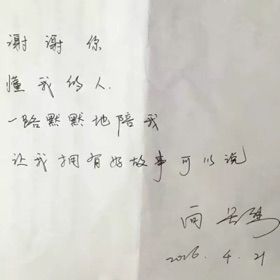 谢谢你
懂我的人.
一路默默地陪我
让我拥有好故事可以说
向
2026. 4. 21